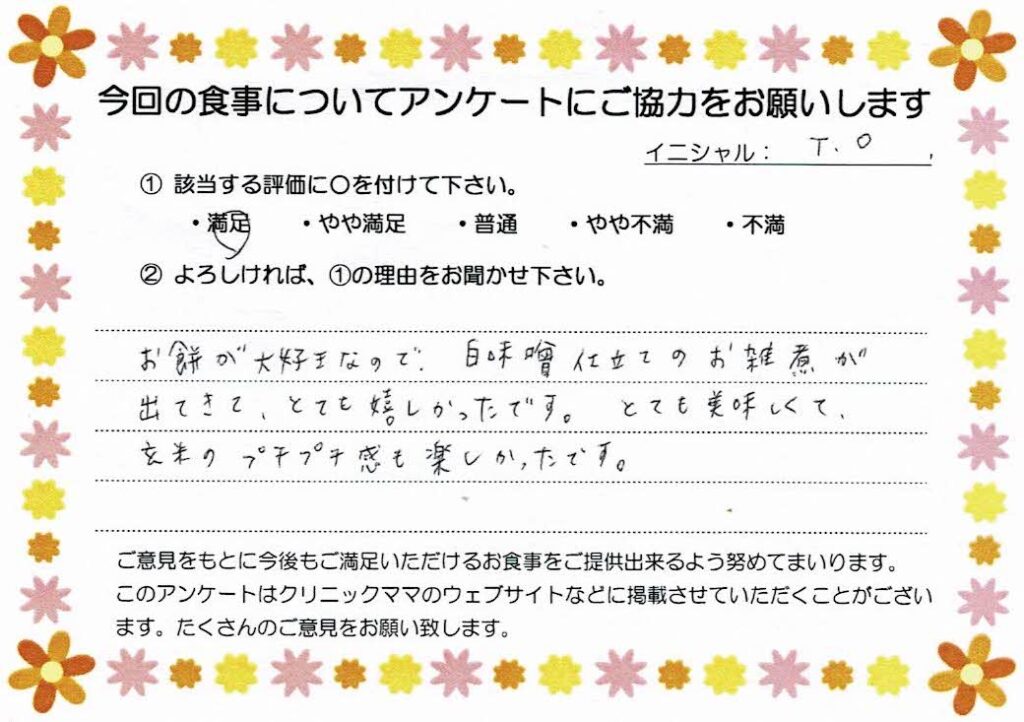 今回の食事についてアンケートにご協力をお願いします
イニシャル： T.O
① 該当する評価に〇を付けて下さい。
・満足 ・やや満足 ・普通 ・やや不満 ・不満
② よろしければ、①の理由をお聞かせ下さい。
お餅が大好きなので、白味噌仕立てのお雑煮が
出てきて、とても嬉しかったです。とても美味しくて、
玄米のプチプチ感も楽しかったです。
ご意見をもとに今後もご満足いただけるお食事をご提供出来るよう努めてまいります。
このアンケートはクリニックママのウェブサイトなどに掲載させていただくことがござい
ます。たくさんのご意見をお願い致します。